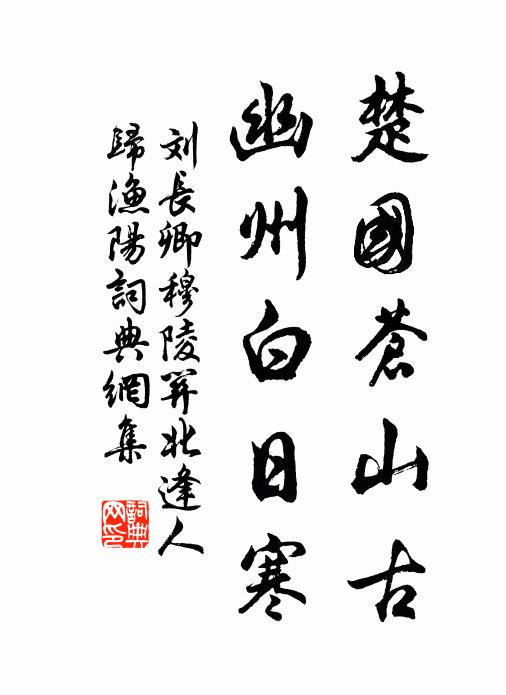 楚國蒼山古
幽州白日寒
刘長卿穆陵關北逢人
歸漁陽詞典網集
詞典
网印